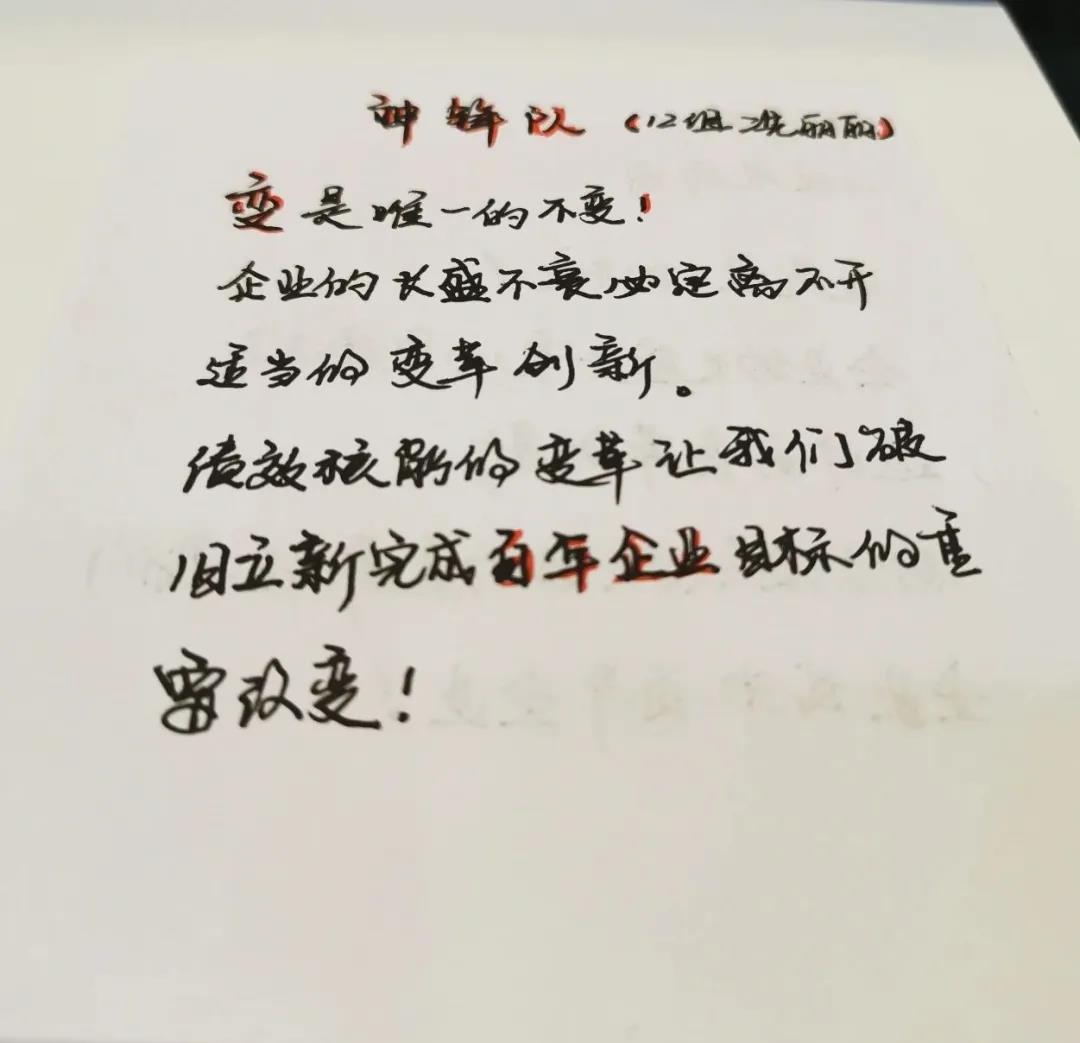 神锋队(12组冼丽丽)
变是唯一的不变!
企业的长盛不衰必定离不开
适当的变革创新。
绩效核酬的变革让我们破
旧立新完成百年企业目标的重
要改变!